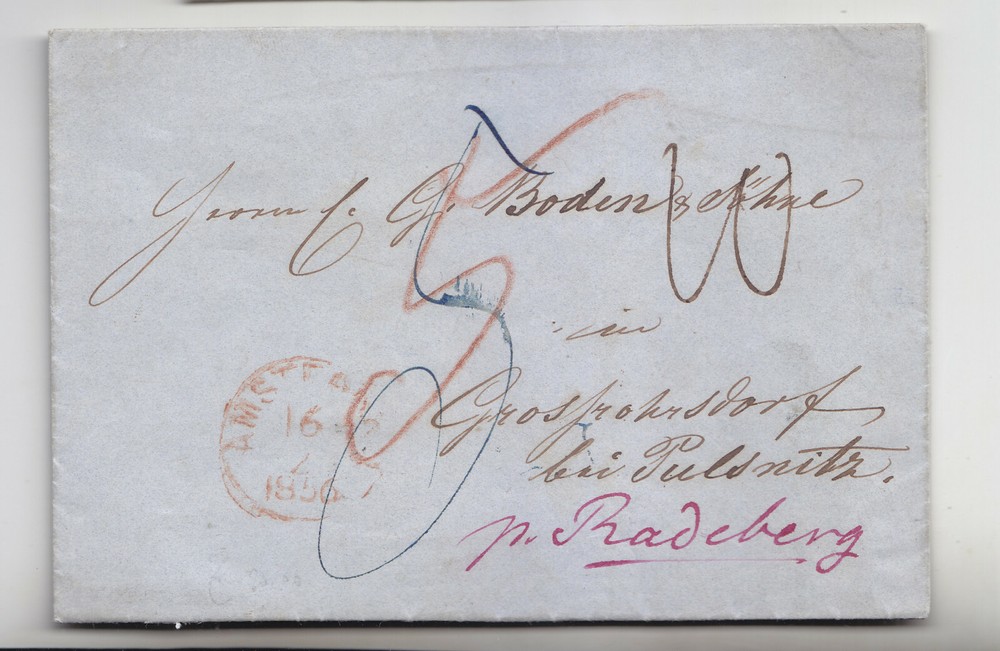 Herrn C. G. Boden & Söhne
10
in
Grossröhrsdorf
bei Pulsnitz.
p. Radeberg
5
AMSTERDAM
16
1856